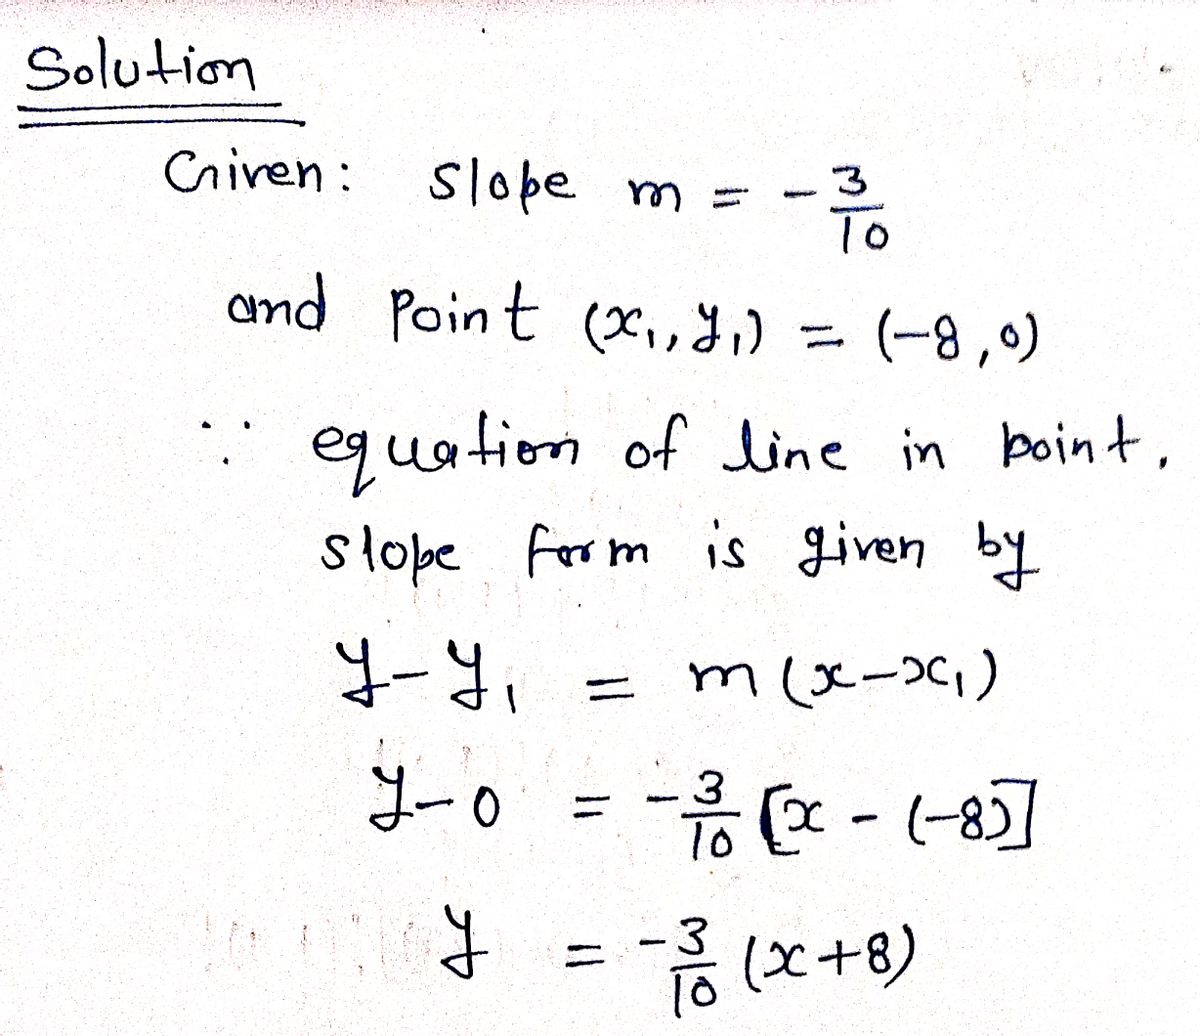 Solution
Given: slope m = -3/10
and Point (x₁, y₁) = (-8, 0)
∵ equation of line in point.
slope form is given by
y-y₁ = m(x-x₁)
y-0 = -3/10 [x - (-8)]
y = -3/10 (x+8)